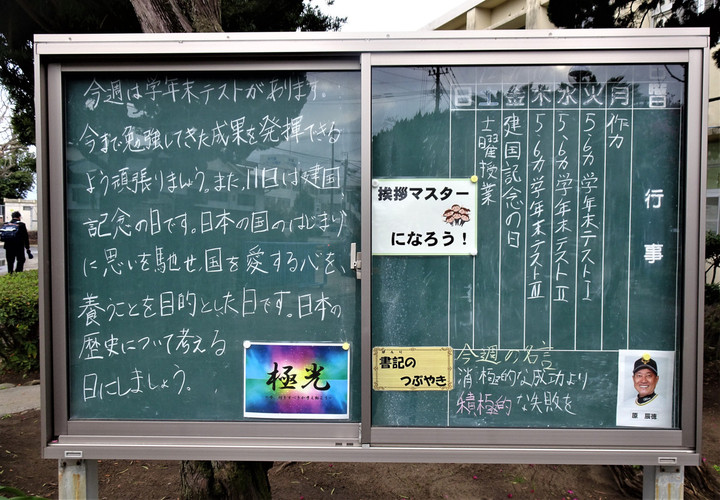 今週は学年末テストがあります。
今まで勉強してきた成果を発揮できる
よう頑張りましょう。また、11日は建国
記念の日です。日本の国のはじまり
に思いを馳せ、国を愛する心を、
養うことを目的とした日です。日本の
歴史について考える
日にしましょう。
極光
曜 行事
月 作力
火 5、6カ学年末テストⅠ
水 5、6カ学年末テストⅡ
木 5、6カ学年末テストⅢ
金 建国記念の日
土 土曜授業
日
挨拶マスター
になろう!
書記の
つぶやき
今週の名言
消極的な成功より
積極的な失敗を
原 辰徳